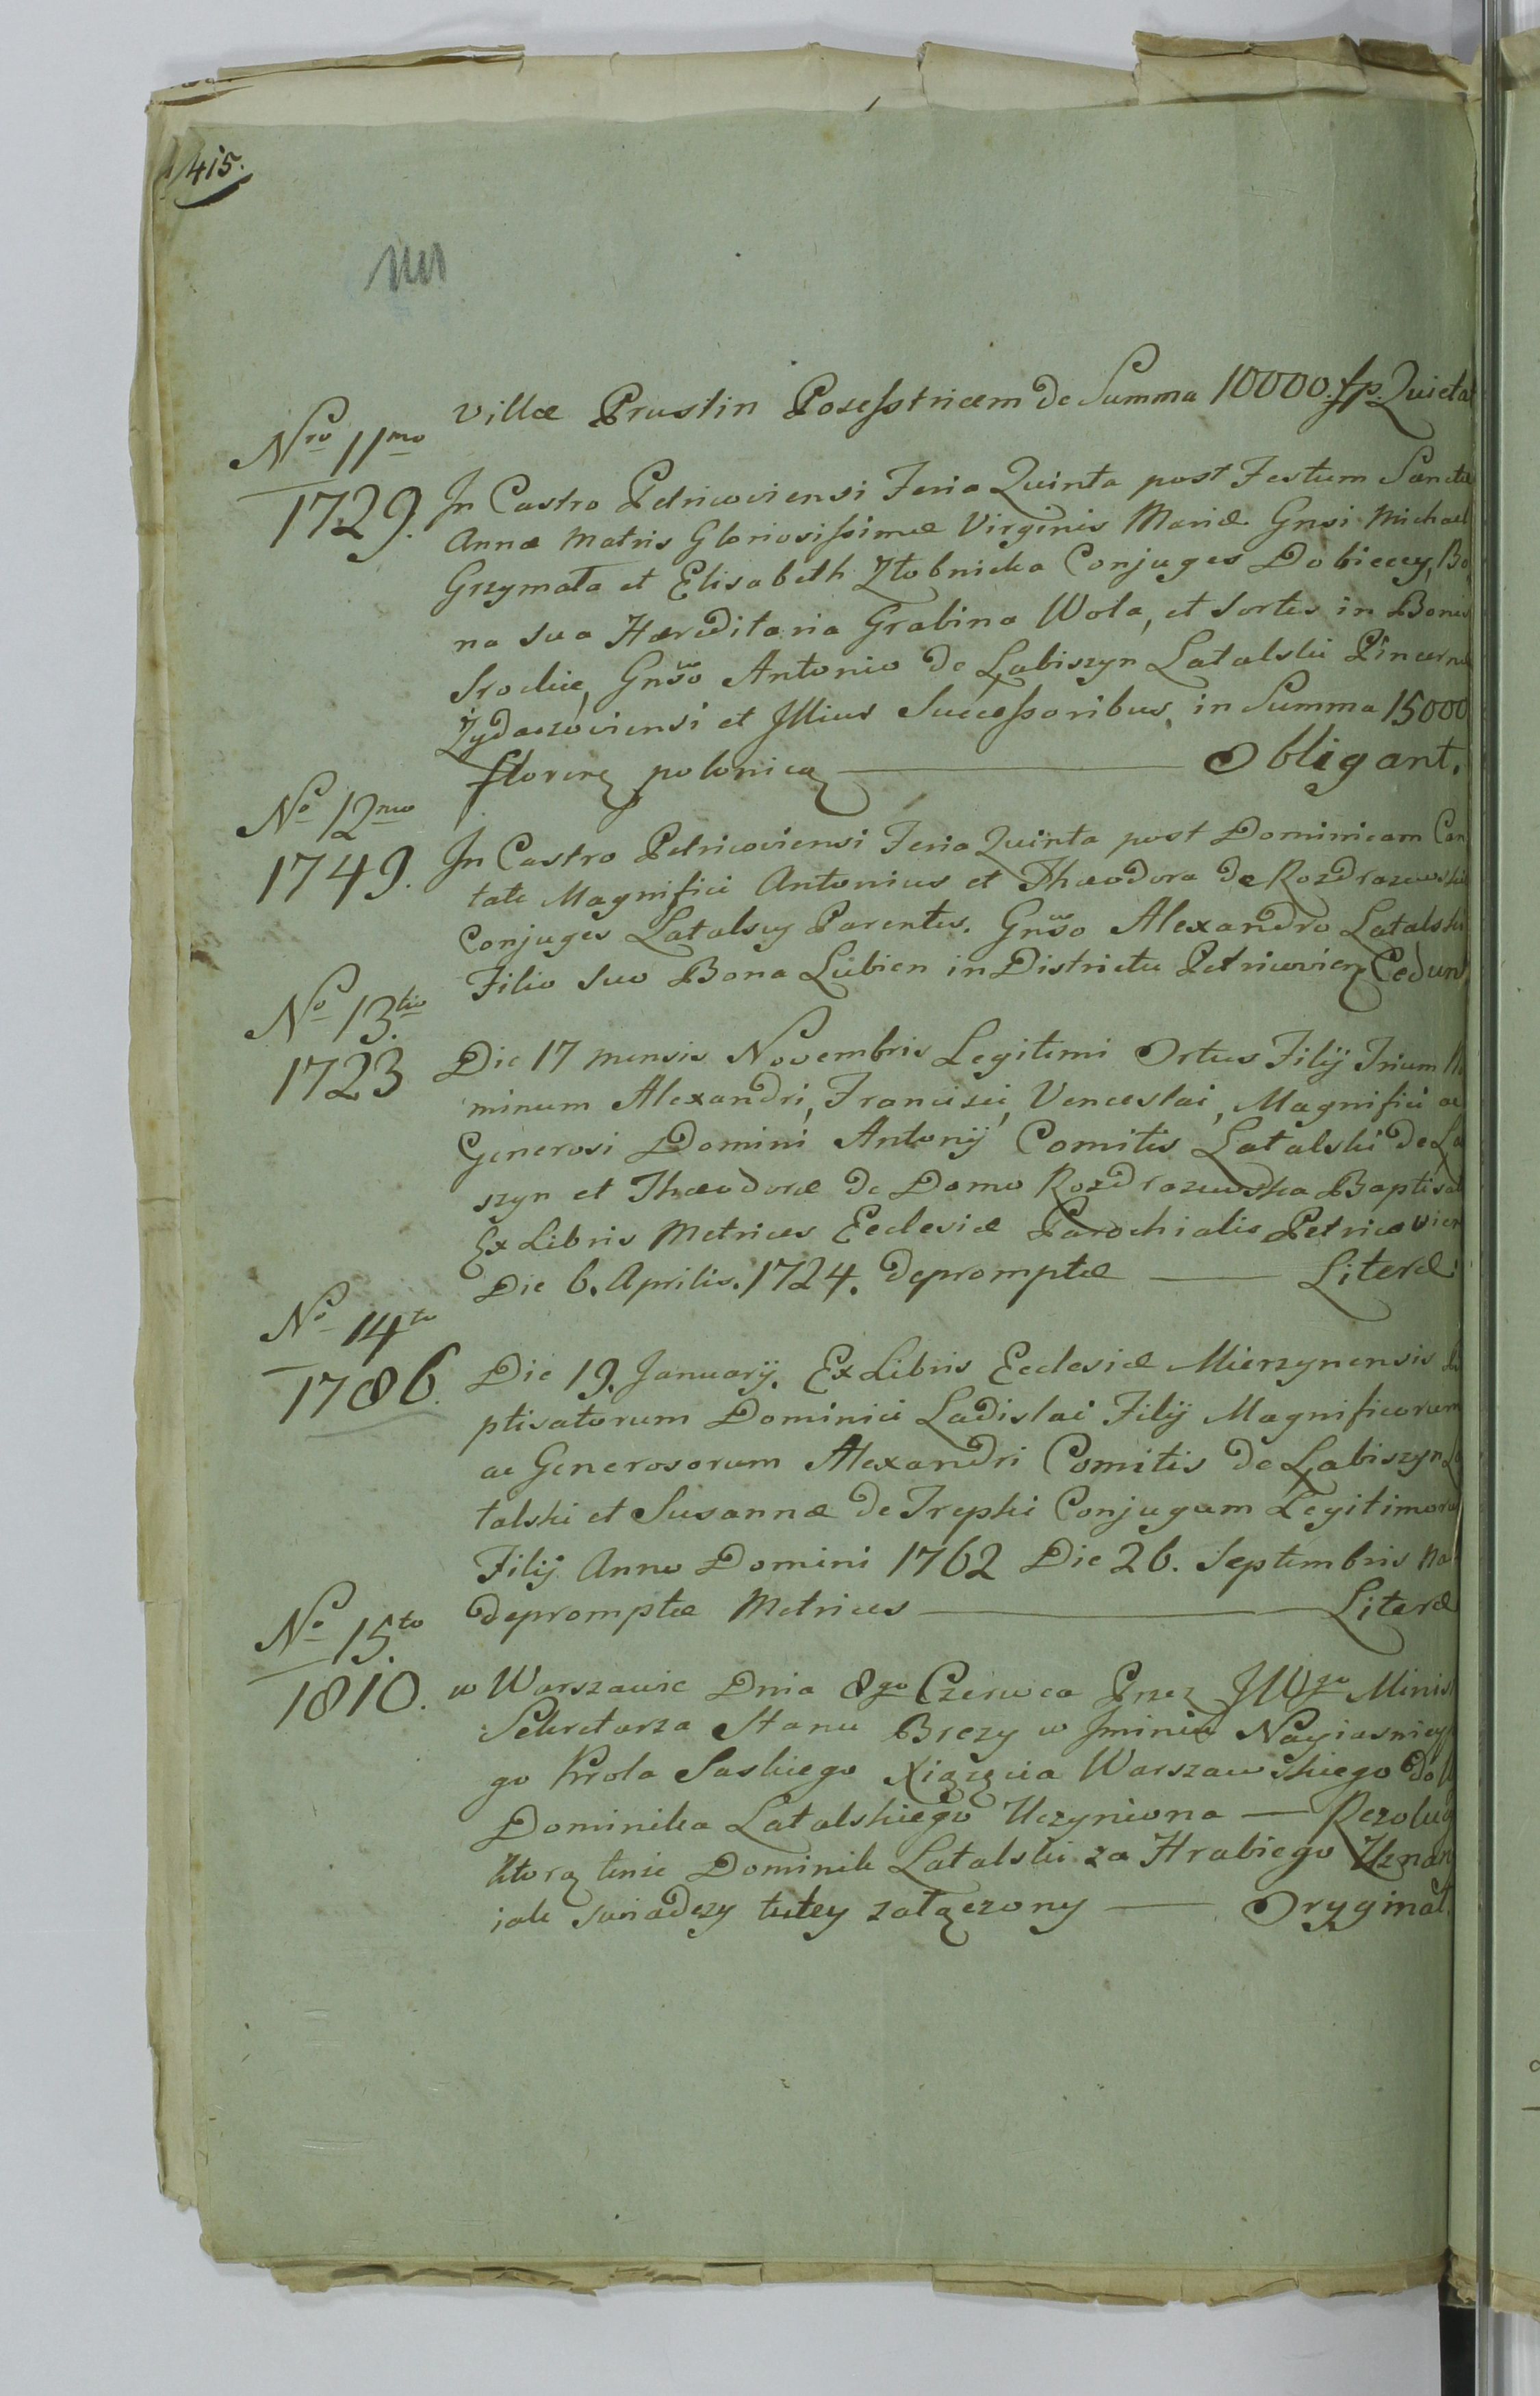 415.
villæ Prustin Posesstricem de Summa 10000. fp. Quietat
Nro 11mo
1729. In Castro Petricoviensi Feria Quinta post Festum Sanctæ
Annæ Matris Gloriosissimæ Virginis Mariæ Gnsi Michael
Grzymała et Elisabeth Złobnicka Conjuges Dobieccy, Bo
na sua Hæreditaria Grabina Wola, et Sortes in Bonis
Srockie, Gnso Antonio de Łabiszyn Latalski Pincerna
Zydaczoviensi et Illius Successoribus, in Summa 15000
floren polonic — Obligant.
No 12mo
1749. In Castro Petricoviensi Feria Quinta post Dominicam Can
tate Magnifici Antonius et Theodora de Rozdrazewskie
Conjuges Latalscy Parentes. Gnso Alexandro Latalski
Filio suo Bona Lubien in Districtu Petricovien Cedunt
No 13tio
1723 Die 17 mensis Novembris Legitimi Ortus Filij Trium
minum Alexandri, Francisci, Venceslai, Magnifici ac
Generosi Domini Antonij Comitis Latalski de Ła
szyn et Theodoræ de Domo Rozdrazewska Baptisat
Ex Libris Metrices Ecclesiæ Parochialis Petricovien
Die 6. Aprilis. 1724. depromptæ — Literæ
No 14to
1786. Die 19. Januarij. Ex Libris Ecclesiæ Mierzynensis Ba
ptisatorum Dominici Ladislai Filij Magnificorum
ac Generosorum Alexandri Comitis de Łabiszyn La
talski et Susannæ de Trepki Conjugum Legitimoru
Filij Anno Domini 1762 Die 26. Septembris na
depromptæ Metrices — Literæ
No 15.to
1810. w Warszawie Dnia 8go Czerwca Przez JWgo Minis
Sekretarza Stanu Brezy w Jmieniu Nayiasniey
go Krola Saskiego Xiążęcia Warszawskiego do
Dominika Latalskiego Uczyniona — Rezoluc
ktorą tenże Dominik Latalski za Hrabiego Uznan
iak swiadczy tutey załączony — Oryginał.